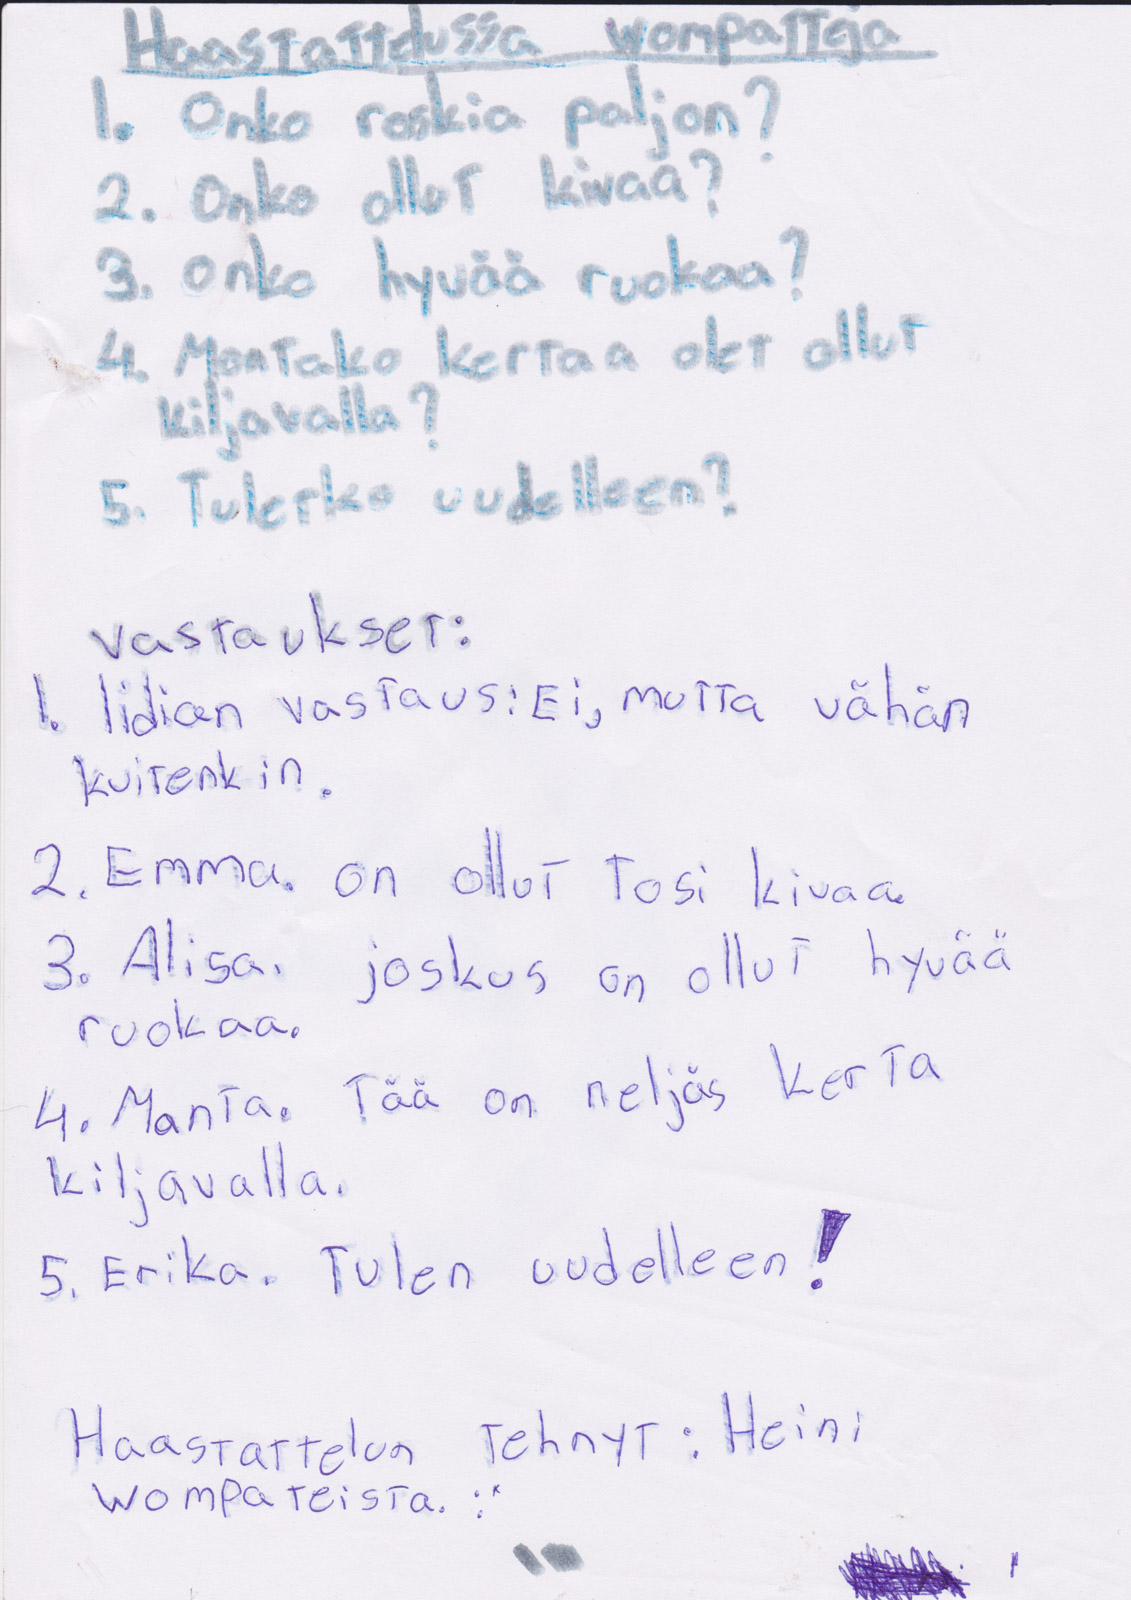 Haastattelussa wompatteja
1. Onko roskia paljon?
2. Onko ollut kivaa?
3. Onko hyvää ruokaa?
4. Montako kertaa olet ollut
kiljavalla?
5. Tuletko uudelleen?
vastaukset:
1. Iidian vastaus: Ei, mutta vähän
kuitenkin.
2. Emma. on ollut tosi kivaa.
3. Alisa. joskus on ollut hyvää
ruokaa.
4. Manta. Tää on neljäs kerta
kiljavalla.
5. Erika. Tulen uudelleen!
Haastattelun tehnyt: Heini
wompateista. :*